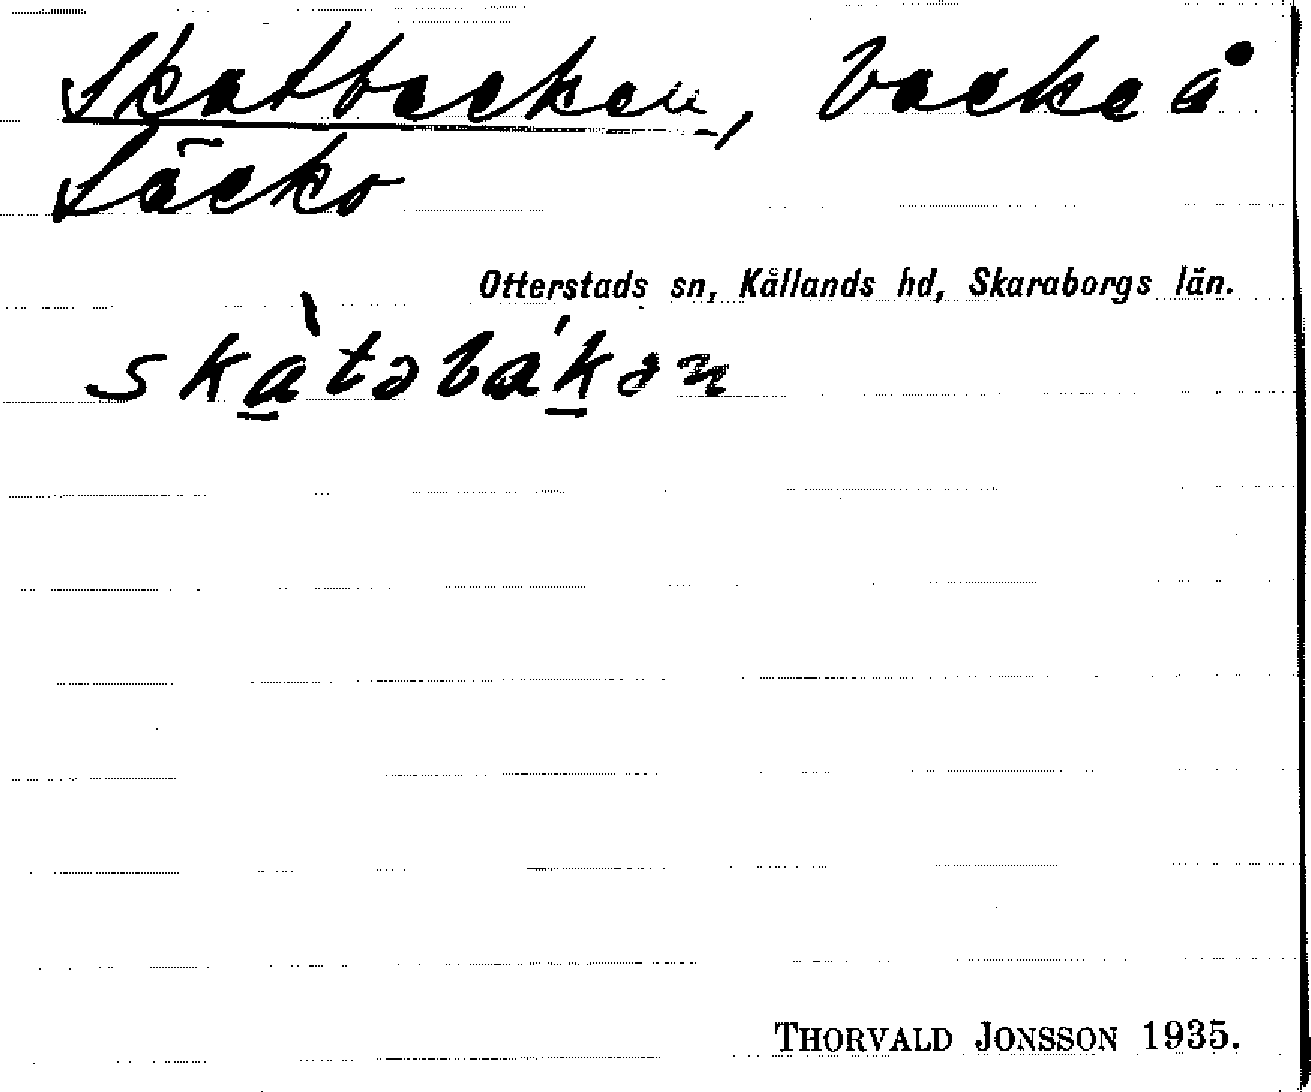 Skatbacken, backe å
Läcko
Otterstads sn, Kållands hd, Skaraborgs län.
skàtəbákən
THORVALD JONSSON 1935.